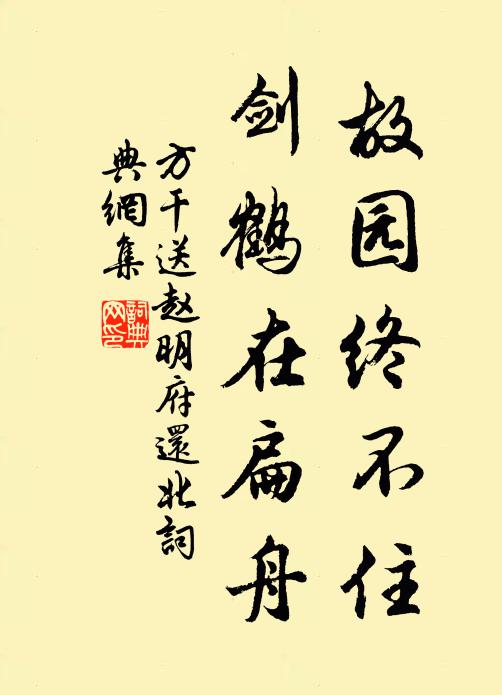 故园终不住
剑鹤在扁舟
方干送赵明府還北詞
典網集
詞典
网印